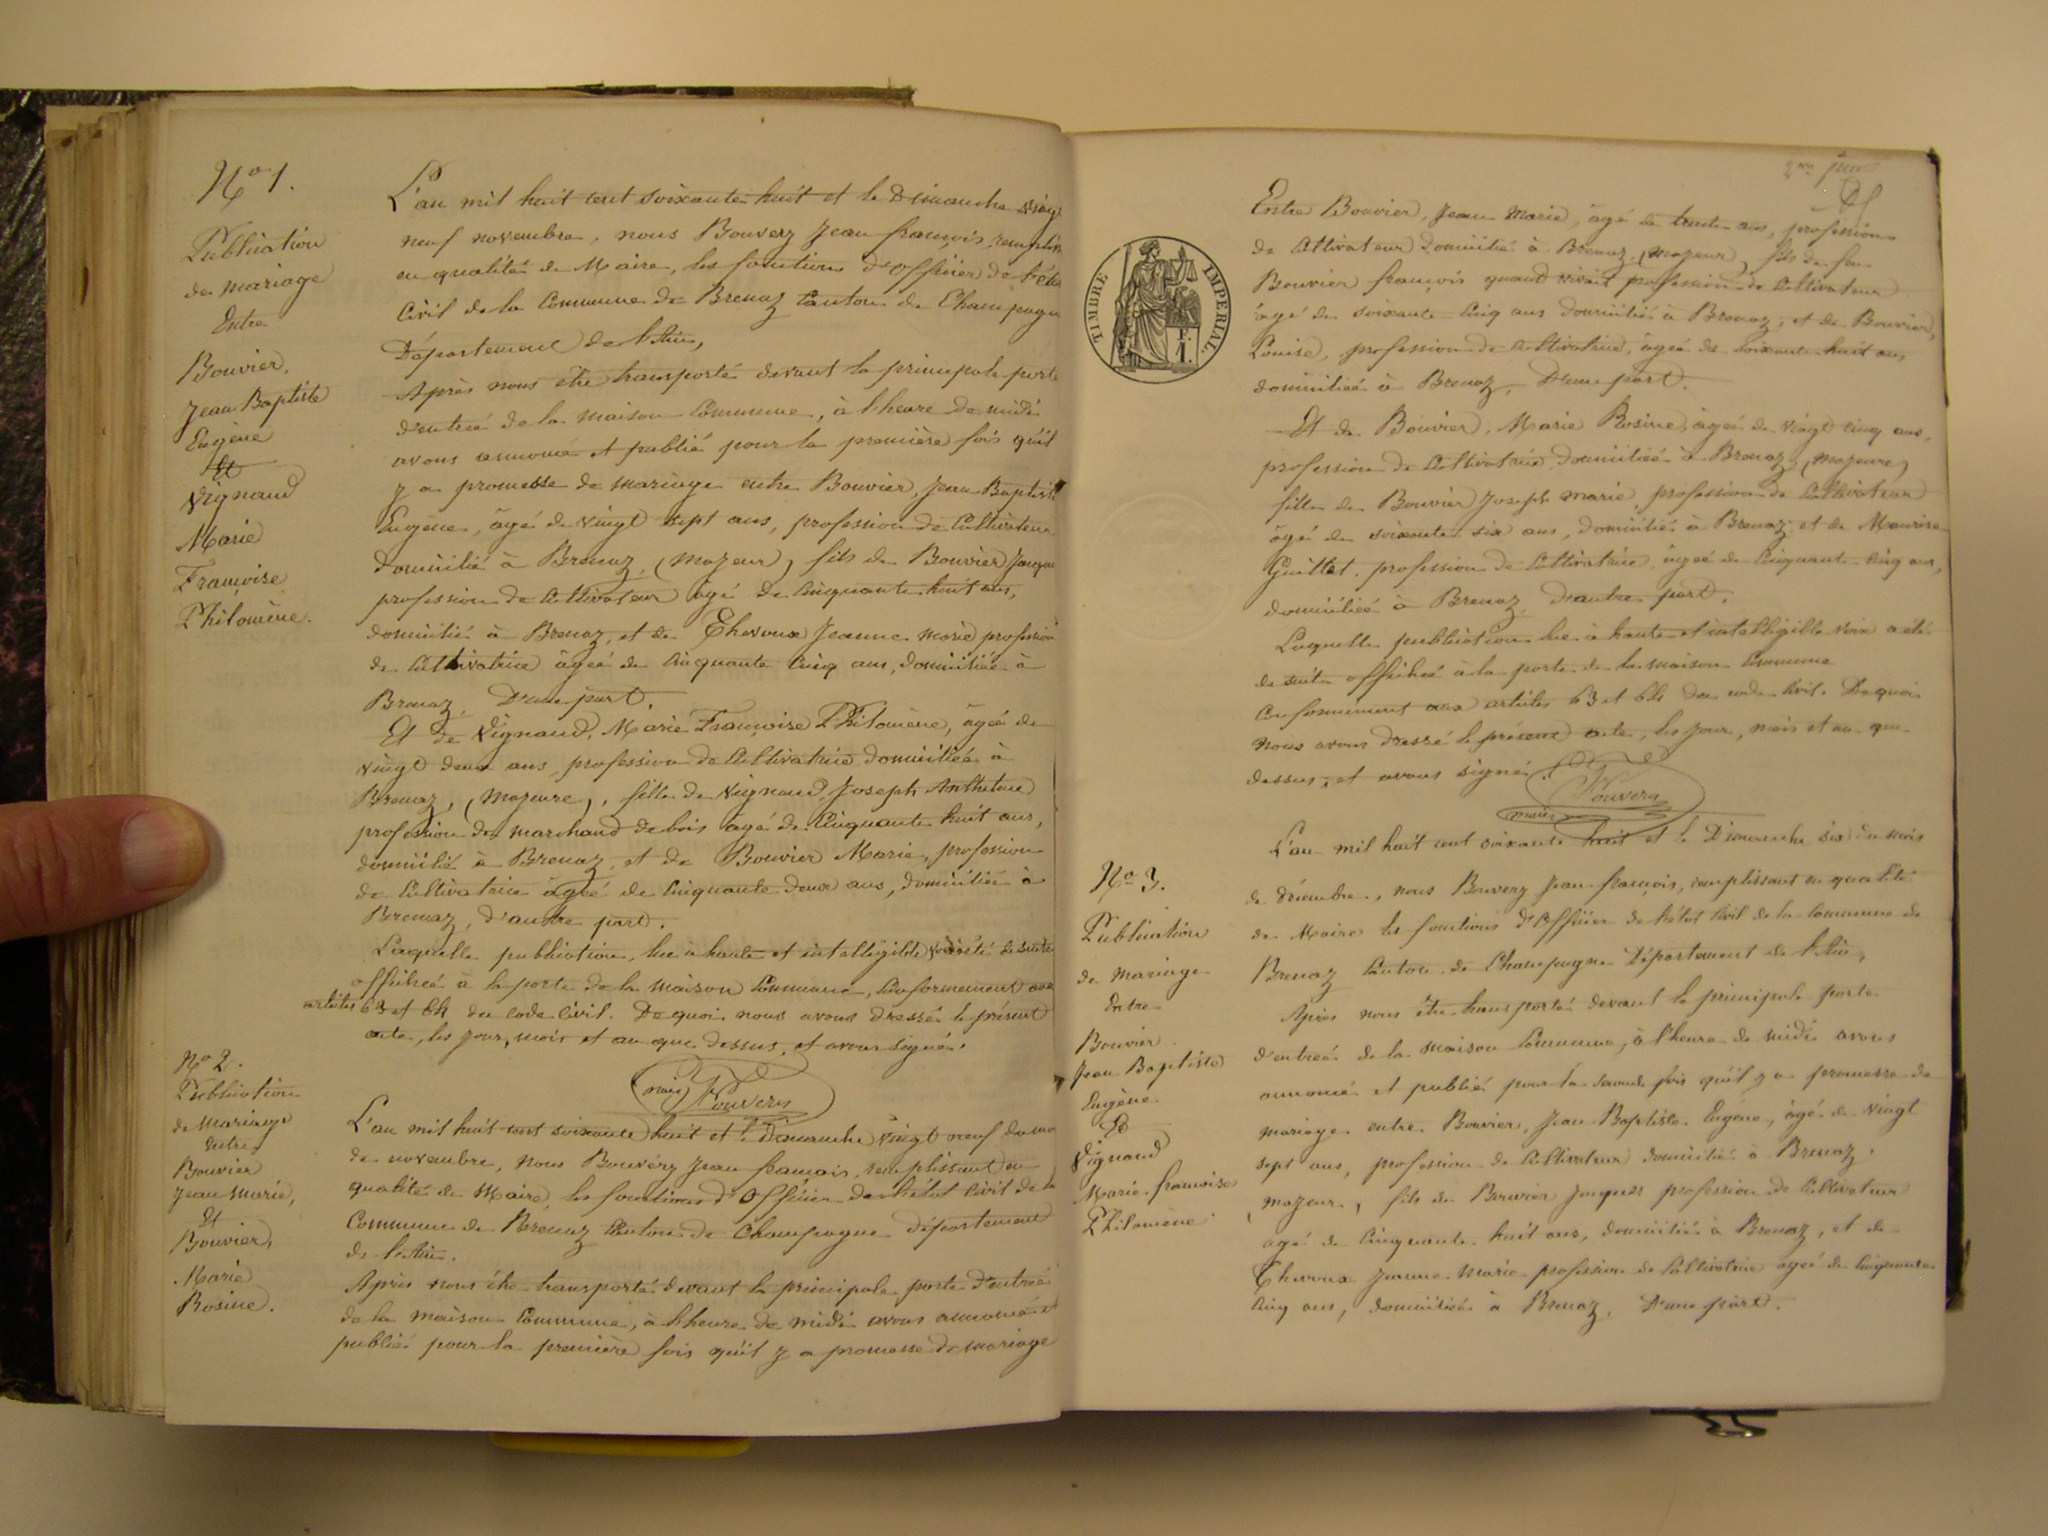 N° 1.
Publication
de mariage
Entre
Bouvier,
Jean Baptiste
Eugène
Et
Vignand
Marie
Françoise
Philomène.
L'an mil huit cent soixante huit et le Dimanche vingt
neuf novembre, nous Bouvery Jean françois, remplis
en qualité de Maire, les fonctions d'officier de l'état
Civil de la Commune de Brenaz Canton de Champagne
Département de l'Ain,
Après nous être transporté devant la principale porte
d'entrée de la maison Commune, à l'heure de midi
avons annoncé et publié pour la première fois qu'il
y a promesse de mariage entre Bouvier, Jean Baptiste
Eugène, âgé de vingt sept ans, profession de Cultivateur
domicilié à Brenaz, (majeur) fils de Bouvier Jacques
profession de Cultivateur âgé de Cinquante huit ans,
domicilié à Brenaz, et de Chevoux Jeanne Marie profession
de Cultivatrice âgée de cinquante cinq ans, domiciliée à
Brenaz, D'une part.
Et de Vignand, Marie Françoise Philomène, âgée de
vingt deux ans, profession de Cultivatrice domiciliée à
Brenaz, (majeure), fille de Vignand, Joseph Anthelme
profession de marchand de bois âgé de Cinquante huit ans,
domicilié à Brenaz, et de Bouvier Marie, profession
de Cultivatrice âgée de Cinquante deux ans, domiciliée à
Brenaz, d'autre part.
Laquelle publication, lue à haute et intelligible voix a été de suite
affichée à la porte de la maison Commune, Conformément aux
articles 63 et 64 du code Civil. De quoi nous avons dressé le présent
acte, les jour, mois et an que dessus, et avons signé.
maire Bouvery
N° 2.
Publication
de Mariage
Entre
Bouvier
Jean Marie,
Et
Bouvier,
Marie
Rosine.
L'an mil huit cent soixante huit et le Dimanche vingt neuf du mois
de novembre, nous Bouvery Jean francois, remplissant en
qualité de Maire, les fonctions d'Officier de l'état Civil de la
Commune de Brenaz Canton de Champagne département
de l'Ain.
Après nous être transporté devant la principale porte d'entrée
de la maison Commune, à l'heure de midi avons annoncé et
publié pour la première fois qu'il y a promesse de mariage
TIMBRE IMPERIAL.
Entre Bouvier, Jean Marie, âgé de trente ans, profession
de Cultivateur domicilié à Brenaz, (majeur) fils de feu
Bouvier françois quand vivait profession de Cultivateur
âgé de soixante Cinq ans domicilié à Brenaz, et de Bouvier,
Louise, profession de Cultivatrice, âgée de soixante huit ans,
domiciliée à Brenaz, D'une part.
Et de Bouvier, Marie Rosine, âgée de vingt cinq ans,
profession de Cultivatrice domiciliée à Brenaz (majeure)
fille de Bouvier Joseph marie, profession de Cultivateur
âgé de soixante six ans, domicilié à Brenaz et de Maurise
Guillot, profession de Cultivatrice, âgée de Cinquante cinq ans,
domiciliée à Brenaz, D'autre part.
Laquelle publication lue à haute et intelligible voix a été
de suite affichée à la porte de la maison Commune
Conformément aux articles 63 et 64 du code Civil. De quoi
nous avons dressé le présent acte, les jour, mois et an que
dessus, et avons signé.
Bouvery
maire
N° 3.
Publication
de mariage
Entre
Bouvier
Jean Baptiste
Eugène
Et
Vignand
Marie françoise
Philomène.
L'an mil huit cent soixante huit et le Dimanche six du mois
de décembre, nous Bouvery Jean françois, remplissant en qualité
de Maire les fonctions d'Officier de l'état Civil de la Commune de
Brenaz Canton de Champagne Département de l'Ain,
Après nous être transporté devant la principale porte
d'entrée de la maison Commune, à l'heure de midi avons
annoncé et publié pour la seconde fois qu'il y a promesse de
mariage entre Bouvier, Jean Baptiste Eugène, âgé de vingt
sept ans, profession de Cultivateur domicilié à Brenaz,
(majeur), fils de Bouvier Jacques profession de Cultivateur
âgé de Cinquante huit ans, domicilié à Brenaz, et de
Chevoux Jeanne Marie profession de Cultivatrice âgée de Cinquante
Cinq ans, domiciliée à Brenaz, D'une part.